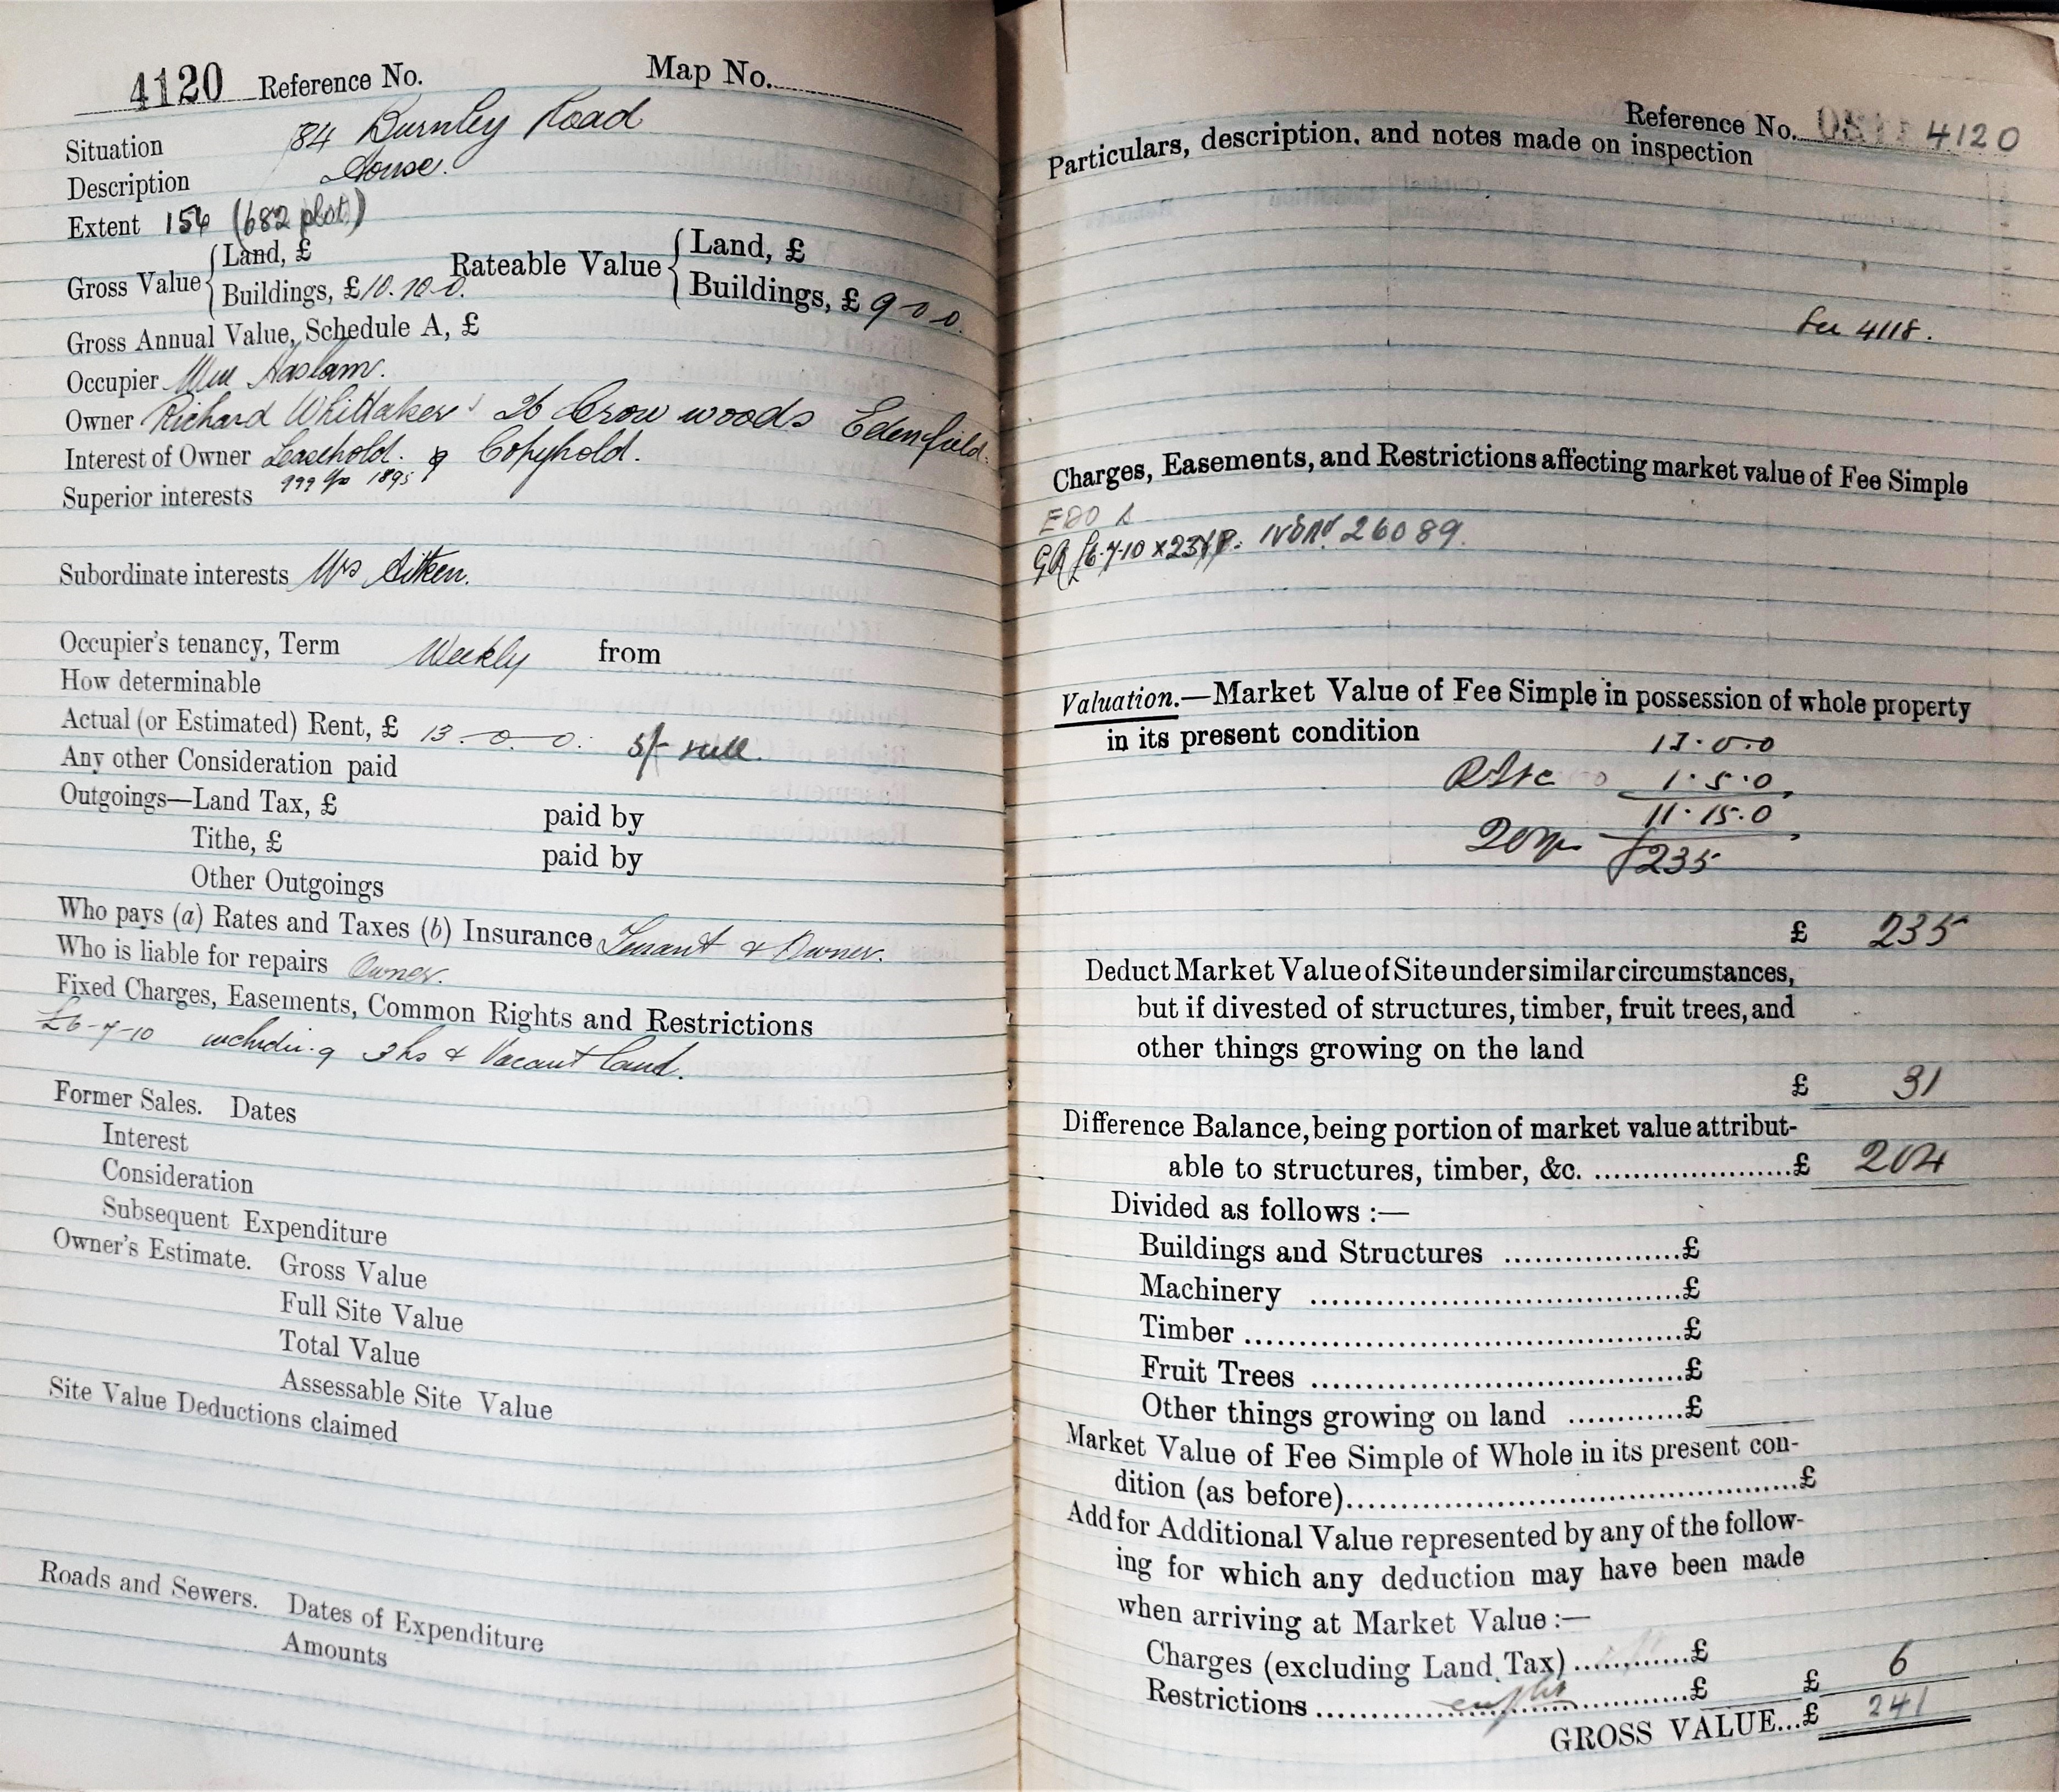 4120 Reference No. Map No.
Situation 84 Burnley Road
Description House.
Extent 154 (682 plot)
Gross Value { Land, £
Buildings, £ 10.10.0. Rateable Value { Land, £
Buildings, £ 9-0-0.
Gross Annual Value, Schedule A, £
Occupier Wm Haslam.
Owner Richard Whittaker 26 Crow woods Edenfield.
Interest of Owner Leasehold. Copyhold.
Superior interests 999 1895
Subordinate interests Mrs Aitken.
Occupier's tenancy, Term Weekly from
How determinable
Actual (or Estimated) Rent, £ 13-0-0. 5/-
Any other Consideration paid
Outgoings—Land Tax, £ paid by
Tithe, £ paid by
Other Outgoings
Who pays (a) Rates and Taxes (b) Insurance Tenant & Owner.
Who is liable for repairs Owner.
Fixed Charges, Easements, Common Rights and Restrictions
£6-7-10 including 3 hs & Vacant land.
Former Sales. Dates
Interest
Consideration
Subsequent Expenditure
Owner's Estimate. Gross Value
Full Site Value
Total Value
Assessable Site Value
Site Value Deductions claimed
Roads and Sewers. Dates of Expenditure
Amounts
Reference No. 4120
Particulars, description, and notes made on inspection
See 4118.
Charges, Easements, and Restrictions affecting market value of Fee Simple
£6-7-10 26089.
Valuation.—Market Value of Fee Simple in possession of whole property
in its present condition
13.0.0
1.5.0
11.15.0
20 yp £235
£ 235
Deduct Market Value of Site under similar circumstances,
but if divested of structures, timber, fruit trees, and
other things growing on the land
£ 31
Difference Balance, being portion of market value attribut-
able to structures, timber, &c. ....................£ 204
Divided as follows :—
Buildings and Structures ..................£
Machinery ......................................£
Timber .............................................£
Fruit Trees ......................................£
Other things growing on land ............£
Market Value of Fee Simple of Whole in its present con-
dition (as before)..............................................£
Add for Additional Value represented by any of the follow-
ing for which any deduction may have been made
when arriving at Market Value :—
Charges (excluding Land Tax) ............£
Restrictions ......................................£ £ 6
GROSS VALUE...£ 241